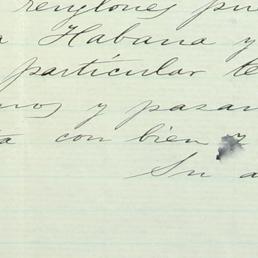 renglones pu
a Habana y
particular te
nos y pasar
ta con bien y
Su a